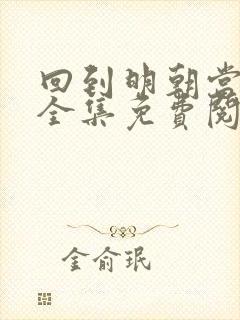 回到明朝当
全集免费阅
金俞珉